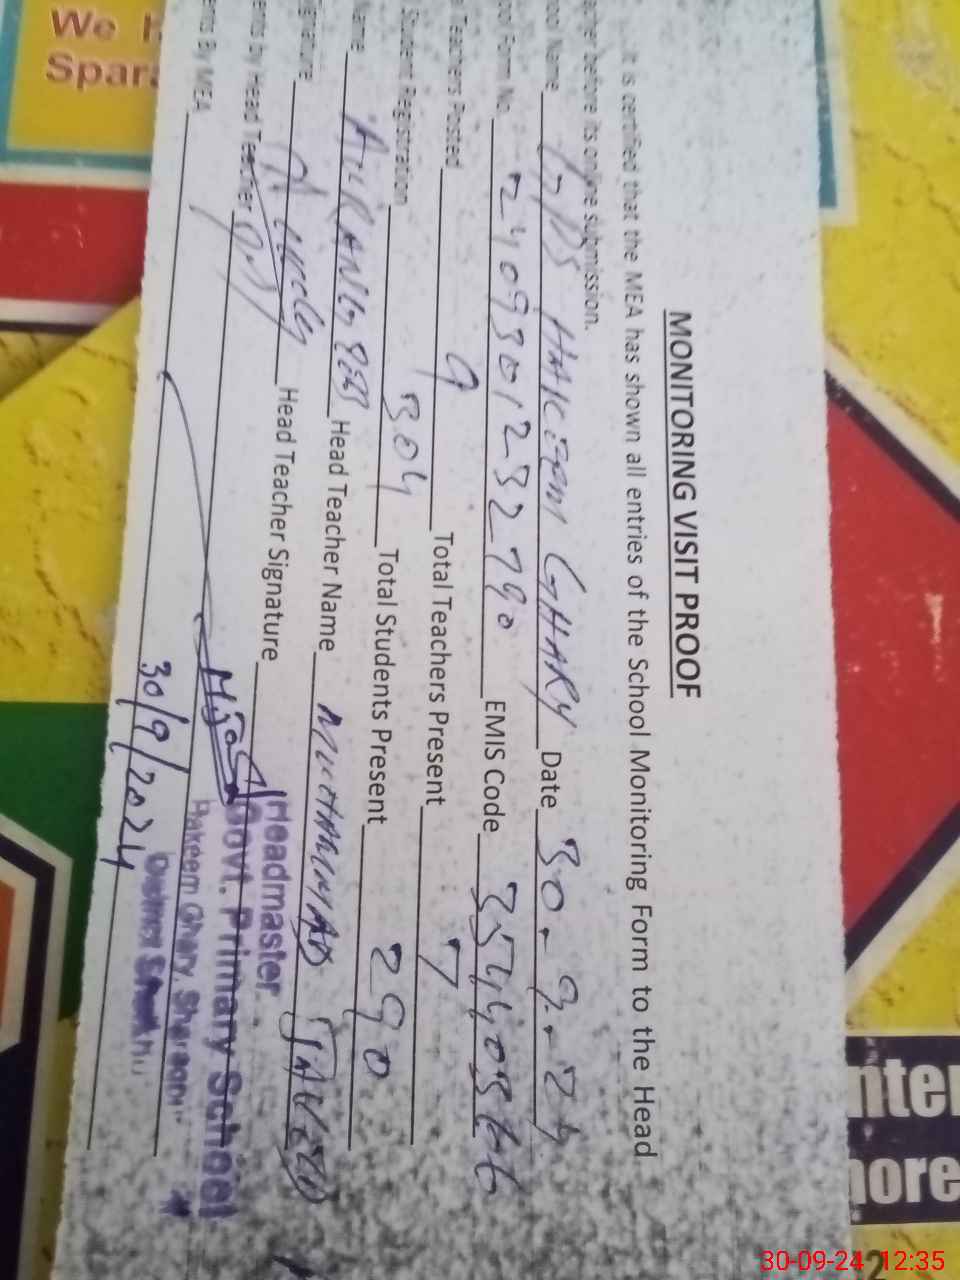 MONITORING VISIT PROOF
It is certified that the MEA has shown all entries of the School Monitoring Form to the Head
before its online submission.
Name GPS HAKEEM GHARY Date 30-9-24
Form No. EMIS Code
Teachers Posted 9 Total Teachers Present 7
Student Registration 304 Total Students Present 290
Name AURANGZEB Head Teacher Name MUHAMMAD JAVED
Head Teacher Signature
by Head Teacher
By MEA
30/9/2024
Headmaster
Govt. Primary School
Hakeem Ghary, Sharaani
We
Spar
nter
ore
30-09-24 12:35